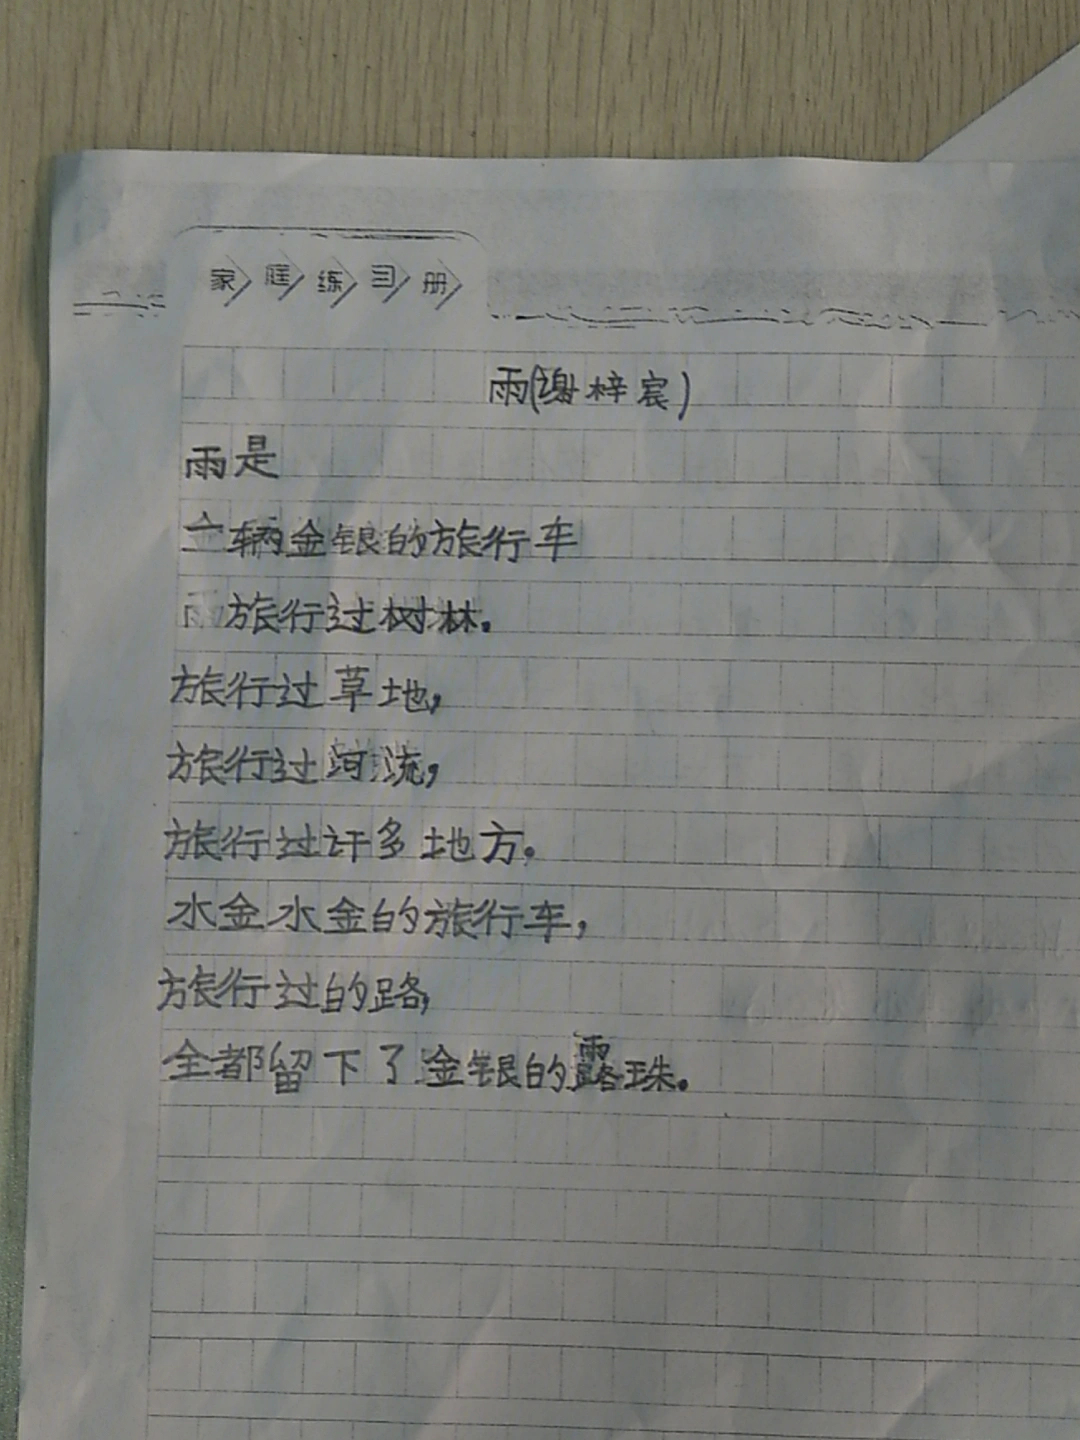 家庭练习册
雨(谢梓宸)
雨是
一辆金银的旅行车
雨旅行过树林.
旅行过草地,
旅行过河流,
旅行过许多地方.
水金水金的旅行车,
旅行过的路,
全都留下了金银的露珠.